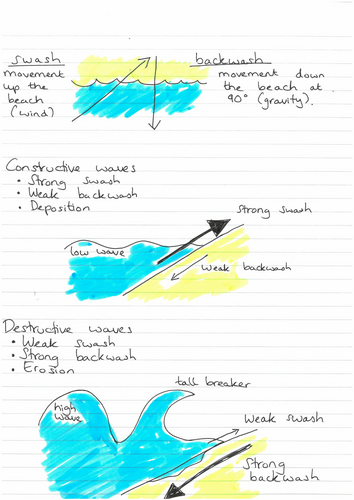 swash
movement
up the
beach
(wind)
backwash
movement down
the beach at
90° (gravity).
Constructive waves
• Strong swash
• Weak backwash
• Deposition
Strong swash
low wave
Weak backwash
Destructive waves
• Weak swash
• Strong backwash
• Erosion
tall breaker
high
wave
Weak swash
Strong
backwash